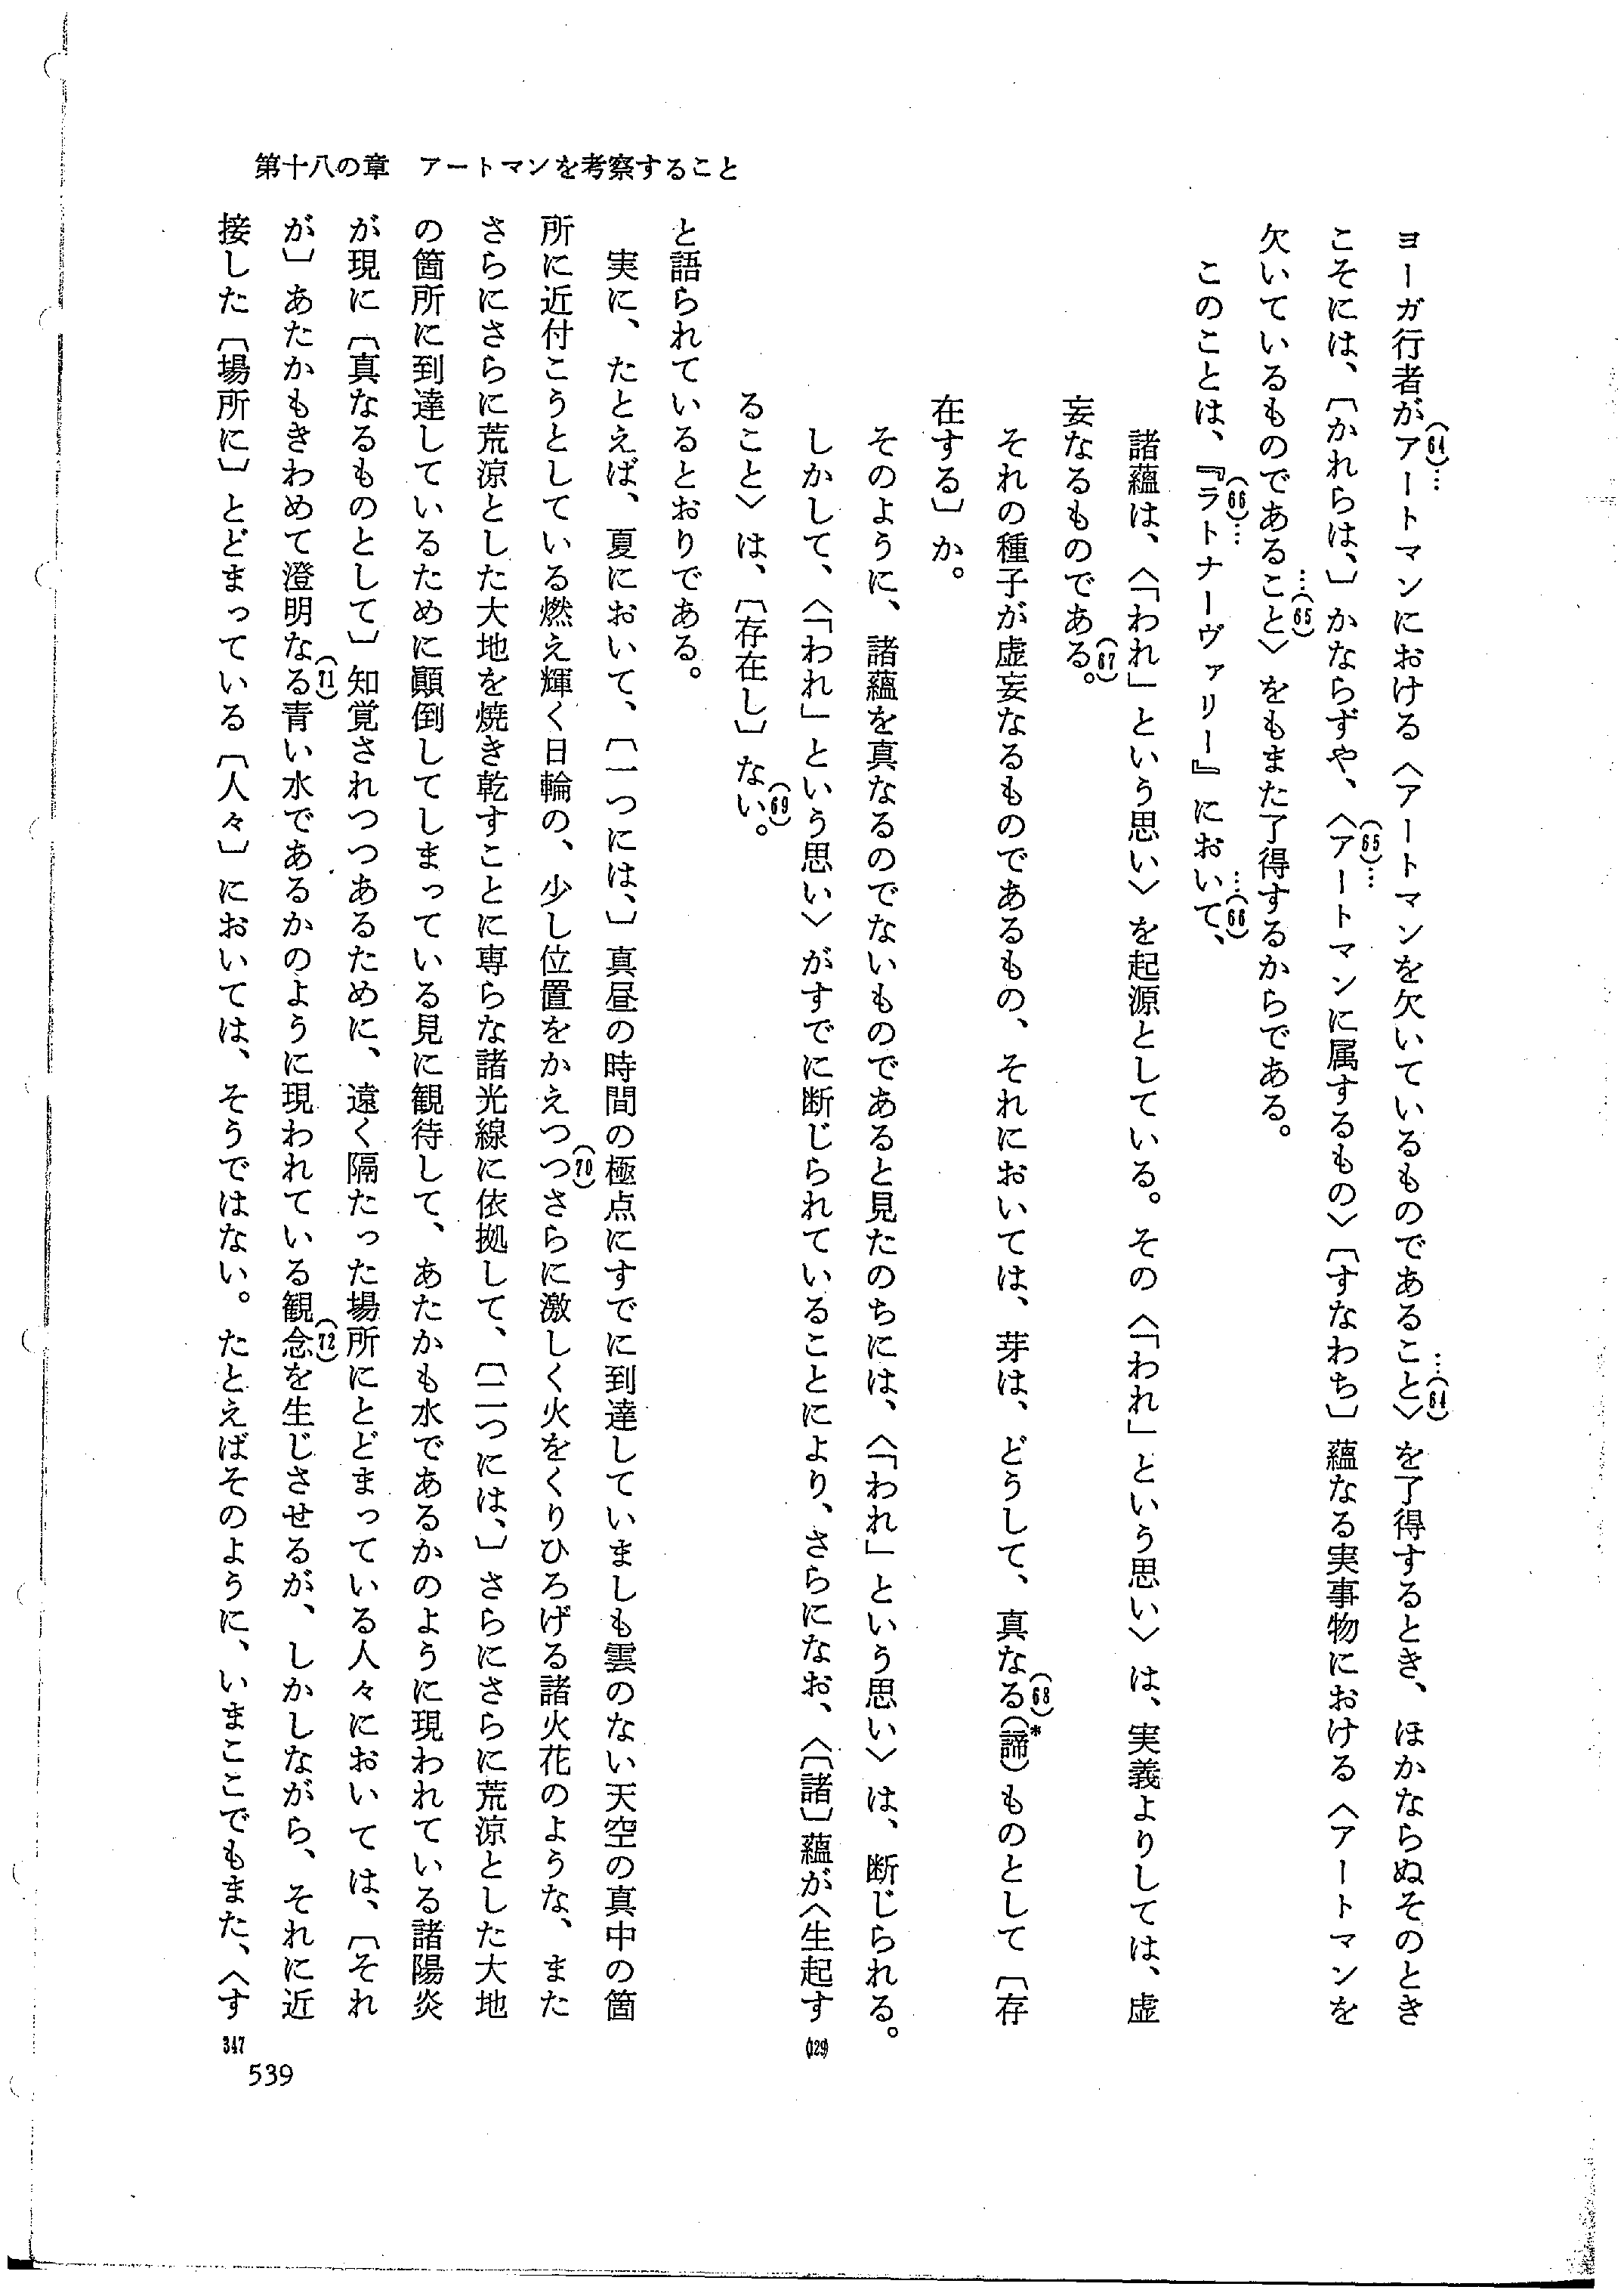 第十八の章　アートマンを考察すること
ヨーガ行者が(64)…アートマンにおける〈アートマンを欠いているものであること〉…(64)を了得するとき、ほかならぬそのとき
こそには、〔かれらは、〕かならずや、〈(65)…アートマンに属するもの〉〔すなわち〕蘊なる実事物における〈アートマンを
欠いているものであること〉…(65)をもまた了得するからである。
このことは、(66)…『ラトナーヴァリー』において、…(66)
諸蘊は、〈「われ」という思い〉を起源としている。その〈「われ」という思い〉は、実義よりしては、虚
妄なるものである。(67)
それの種子が虚妄なるものであるもの、それにおいては、芽は、どうして、真なる(68)(諦*)ものとして〔存
在する〕か。
そのように、諸蘊を真なるのでないものであると見たのちには、〈「われ」という思い〉は、断じられる。
しかして、〈「われ」という思い〉がすでに断じられていることにより、さらになお、〈〔諸〕蘊が〈生起す
(129)
ること〉は、〔存在し〕ない。(69)
と語られているとおりである。
実に、たとえば、夏において、〔一つには、〕真昼の時間の極点にすでに到達していましも雲のない天空の真中の箇
所に近付こうとしている燃え輝く日輪の、少し位置をかえつつ(70)さらに激しく火をくりひろげる諸火花のような、また
さらにさらに荒涼とした大地を焼き乾すことに専らな諸光線に依拠して、〔二つには、〕さらにさらに荒涼とした大地
の箇所に到達しているために顚倒してしまっている見に観待して、あたかも水であるかのように現われている諸陽炎
が現に〔真なるものとして〕知覚されつつあるために、遠く隔たった場所にとどまっている人々においては、〔それ
が〕あたかもきわめて澄明なる(71)青い水であるかのように現われている観念(72)を生じさせるが、しかしながら、それに近
接した〔場所に〕とどまっている〔人々〕においては、そうではない。たとえばそのように、いまここでもまた、〈す
347
539